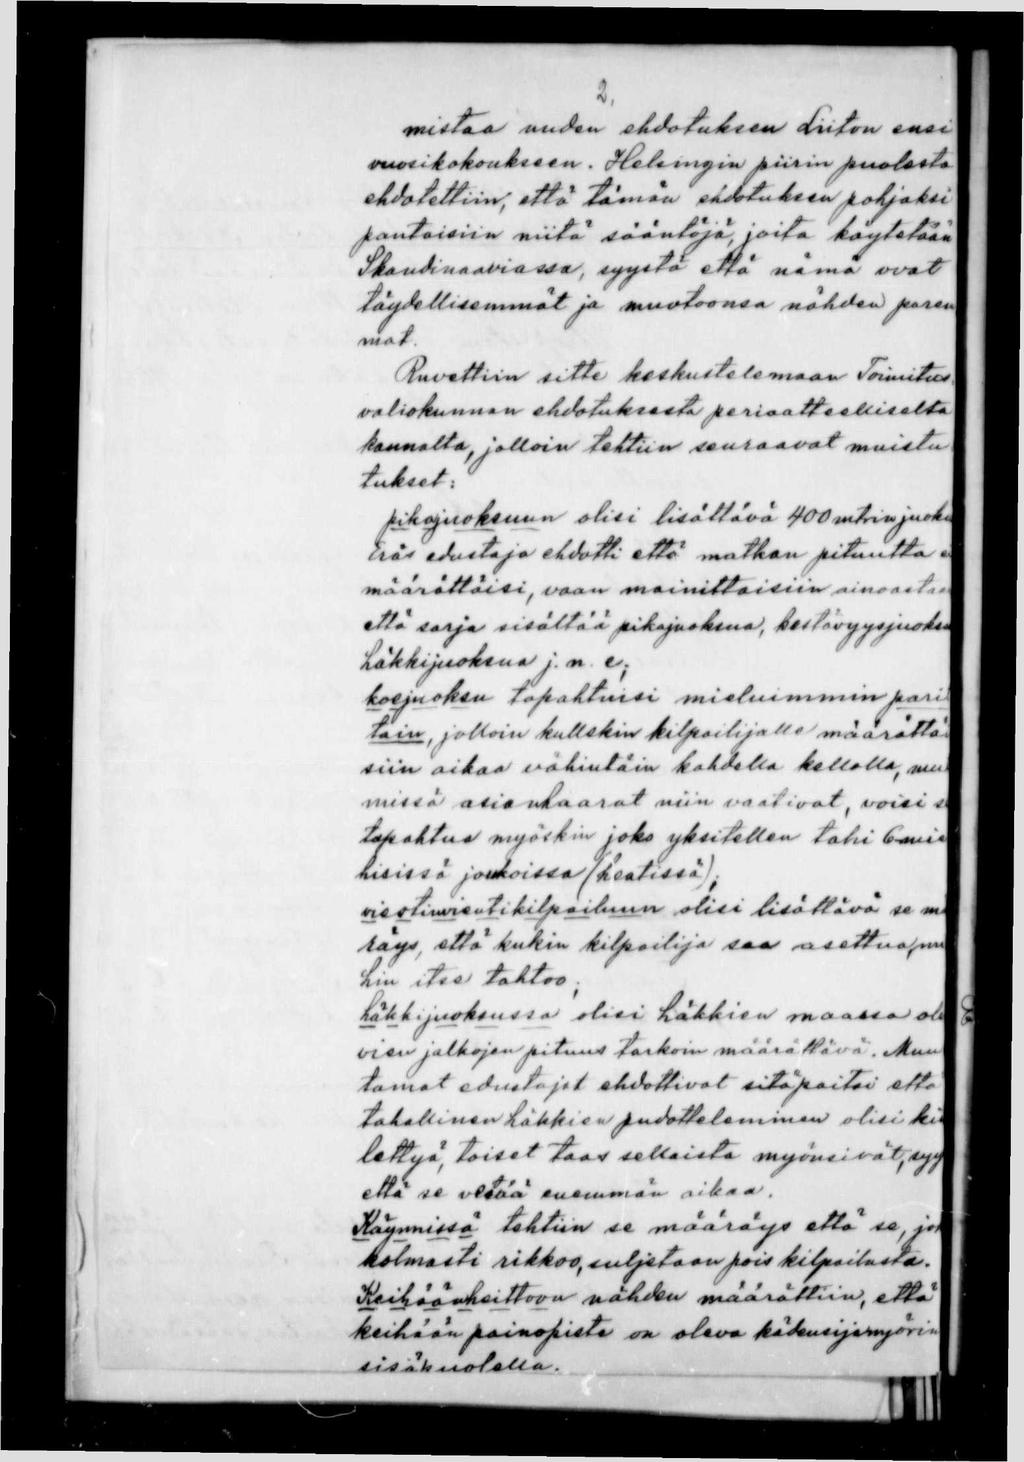 2,
mistaa uuden ehdotuksen Liiton ensi
vuosikokoukseen. Helsingin piirin puolesta
ehdotettiin, että tämän ehdotuksen pohjaksi
pantaisiin niitä sääntöjä, joita käytetään
Skandinaaviassa, syystä että nämä ovat
täydellisemmät ja muotoonsa nähden parem
mat.
Ruvettiin sitte keskustelemaan Toimitus
valiokunnan ehdotuksesta periaatteelliselta
kannalta, jolloin tehtiin seuraavat muistu
tukset:
pikajuoksuun olisi lisättävä 400 mtrin juoks
Eräs edustaja ehdotti että matkan pituutta e
määrättäisi, vaan mainittaisiin ainoastaa
että sarja sisältää pikajuoksua, kestävyysjuoksu
häkkijuoksua j. n. e;
koejuoksu tapahtuisi mieluimmin pari
tain, jolloin kullekin kilpailijalle määrättäi
siin aikaa vähintäin kahdella kellolla, mu
missä asianhaarat niin vaativat, voisi s
tapahtua myöskin joko yksitellen tahi 6 mie
hisissä joukoissa (heatissä);
viestinvientikilpailuun olisi lisättävä se m
räys, että kukin kilpailija saa asettua, m
hin itse tahtoo;
häkkijuoksussa olisi häkkien maassa ole
vien jalkojen pituus tarkoin määrättävä. Muu
tamat edustajat ehdottivat sitäpaitsi että
tahallinen häkkien pudotteleminen olisi kie
lettyä, toiset taas sellaista myönsivät, syy
että se vetää enemmän aikaa.
Käynnissä tehtiin se määräys että se, jo
kolmasti rikkoo, suljetaan pois kilpailusta.
Keihäänheittoon nähden määrättiin, että
keihään painopiste on oleva kädensijamyörin
sisäpuolella.